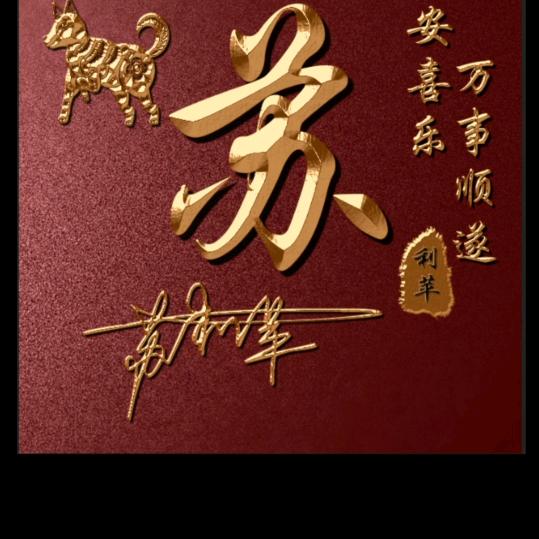 苏
万事顺遂
安喜乐
利苹
苏利苹